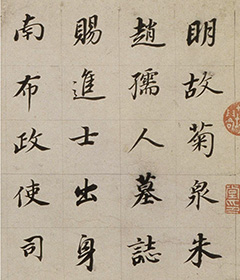 明故菊泉朱
趙孺人墓誌
賜進士出身
南布政使司